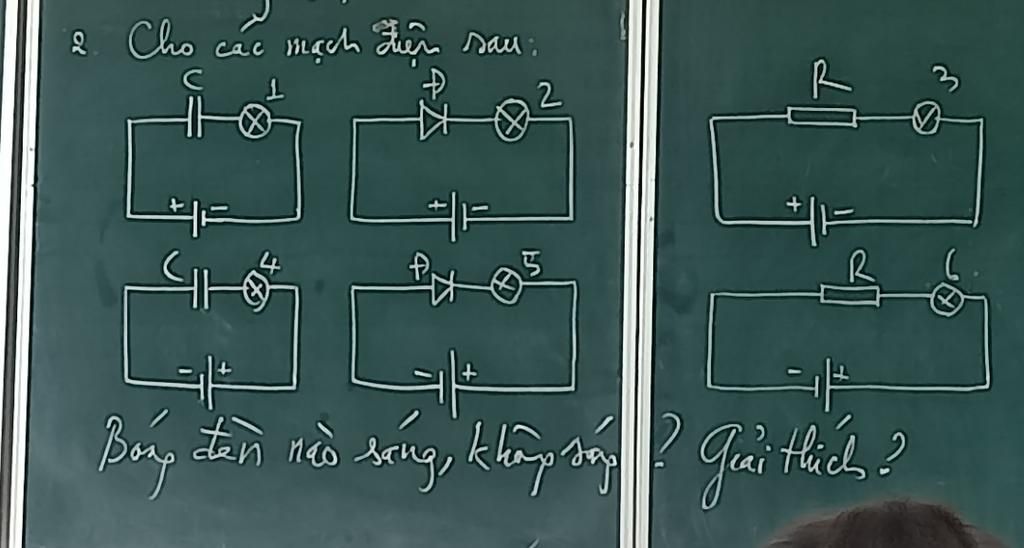 2. Cho các mạch điện sau:
C 1 Đ 2 R 3
+ - + - + -
C 4 Đ 5 R 6
- + - + - +
Bóng đèn nào sáng, không sáng? Giải thích?